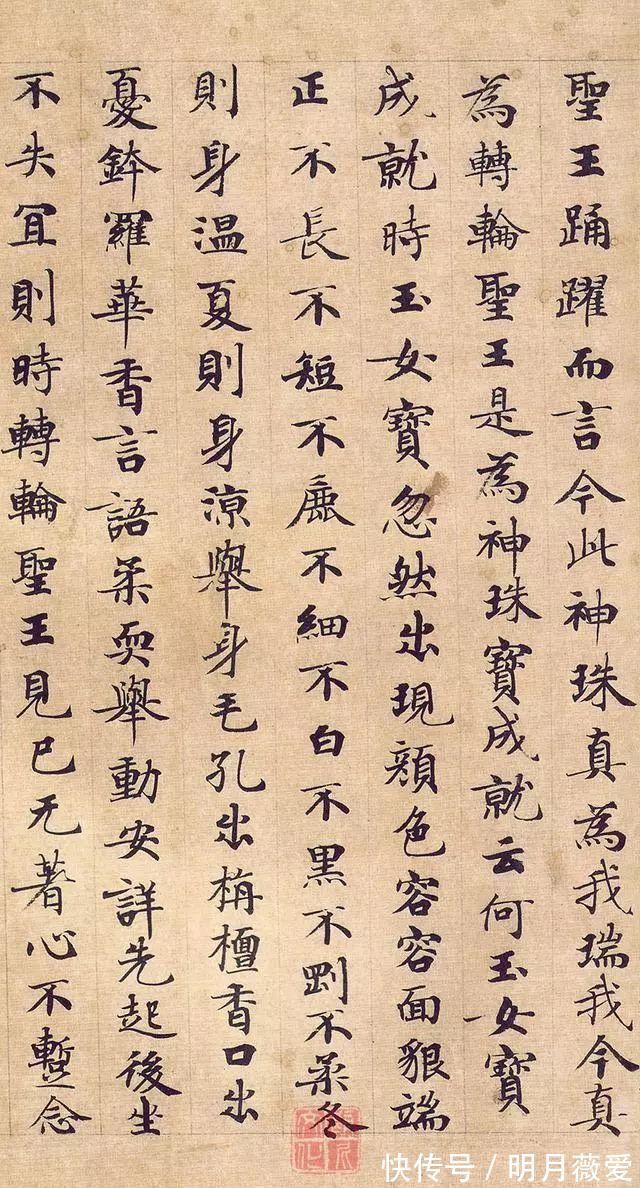 聖王踊躍而言今此神珠真為我瑞我今真
為轉輪聖王是為神珠寶成就云何玉女寶
成就時玉女寶忽然出現顏色容容面貌端
正不長不短不麁不細不白不黒不剛不柔冬
則身温夏則身涼舉身毛孔出栴檀香口出
憂鉢羅華香言語柔耎舉動安詳先起後坐
不失冝則時轉輪聖王見已无著心不蹔念
快传号/明月薇爱